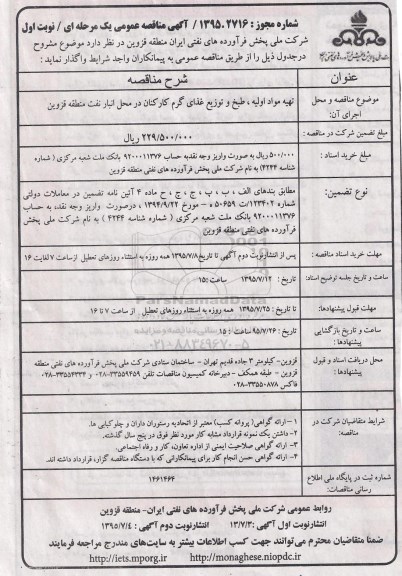 شماره مجوز : ۱۳۹۵.۲۷۱۶ / آگهی مناقصه عمومی یک مرحله ای / نوبت اول
شرکت ملی پخش فرآورده های نفتی ایران منطقه قزوین در نظر دارد موضوع مشروح
درجدول ذیل را از طریق مناقصه عمومی به پیمانکاران واجد شرایط واگذار نماید :
عنوان
شرح مناقصه
موضوع مناقصه و محل
اجرای آن:
تهیه مواد اولیه ، طبخ و توزیع غذای گرم کارکنان در محل انبار نفت منطقه قزوین
مبلغ تضمین شرکت در مناقصه :
۲۲۹/۵۰۰/۰۰۰ ریال
مبلغ خرید اسناد :
۵۰۰/۰۰۰ ریال به صورت واریز وجه نقدبه حساب ۹۲۰۰۰۱۱۳۷۶ بانک ملت شعبه مرکزی ( شماره
شناسه ۴۲۴۴) به نام شرکت ملی پخش فرآورده های نفتی منطقه قزوین
نوع تضمین:
مطابق بندهای الف ، ب ، پ ، ج ، چ ، ح ماده ۴ آئین نامه تضمین در معاملات دولتی
شماره ۱۲۳۴۰۲/ت ۵۰۶۵۹ ه – مورخ ۱۳۹۴/۹/۲۲ ، درصورت واریز وجه نقد، به حساب
۹۲۰۰۰۱۱۳۷۶ بانک ملت شعبه مرکزی ( شماره شناسه ۴۲۴۴ ) به نام شرکت ملی پخش
فرآورده های نفتی منطقه قزوین
مهلت خرید اسناد مناقصه :
پس از انتشارنوبت دوم آگهی تا تاریخ۱۳۹۵/۷/۸ همه روزه به استثناء روزهای تعطیل ازساعت ۷ لغایت ۱۶
ساعت و تاریخ جلسه توضیح اسناد:
تاریخ : ۱۳۹۵/۷/۱۲ ساعت :۱۵
مهلت قبول پیشنهادها:
تا تاریخ : ۱۳۹۵/۷/۲۵ همه روزه به استثناء روزهای تعطیل از ساعت ۷ تا ۱۶
ساعت و تاریخ بازگشایی
پیشنهادها :
تاریخ : ۹۵/۷/۲۶ ساعت : ۱۵
محل دریافت اسناد و قبول
پیشنهادها :
قزوین- کیلومتر ۳ جاده قدیم تهران - ساختمان ستادی شرکت ملی پخش فرآورده های نفتی منطقه
قزوین - طبقه همکف - دبیرخانه کمیسیون مناقصات تلفن ۳۳۵۵۹۴۵۹-۰۲۸ و ۳۳۵۵۴۳۳۴-۰۲۸
فاکس ۳۳۵۵۰۸۷۸-۰۲۸
شرایط متقاضیان شرکت در
مناقصه:
۱- ارائه گواهی( پروانه کسب) معتبر از اتحادیه رستوران داران و چلوکبابی ها.
۲- داشتن یک نمونه قرارداد مشابه کار مورد نظر فوق در پنج سال گذشته.
۳- ارائه گواهی صلاحیت ایمنی از اداره تعاون، کار و رفاه اجتماعی.
۴- ارائه گواهی حسن انجام کار برای پیمانکارانی که با دستگاه مناقصه گزار، قرارداد داشته اند.
شماره ثبت در پایگاه ملی اطلاع
رسانی مناقصات:
۱۴۶۱۴۶۴
روابط عمومی شرکت ملی پخش فرآورده های نفتی ایران- منطقه قزوین
انتشارنوبت اول آگهی : ۱۳/۷/۳ انتشارنوبت دوم آگهی : ۱۳۹۵/۷/۴
ضمنا متقاضیان محترم می‌توانند جهت کسب اطلاعات بیشتر به سایت‌های مندرج مراجعه فرمایند
http://iets.mporg.ir http://monaghese.niopdc.ir
ParsNamadData
۰۲۱-۸۸۳۴۹۶۷۰-۵